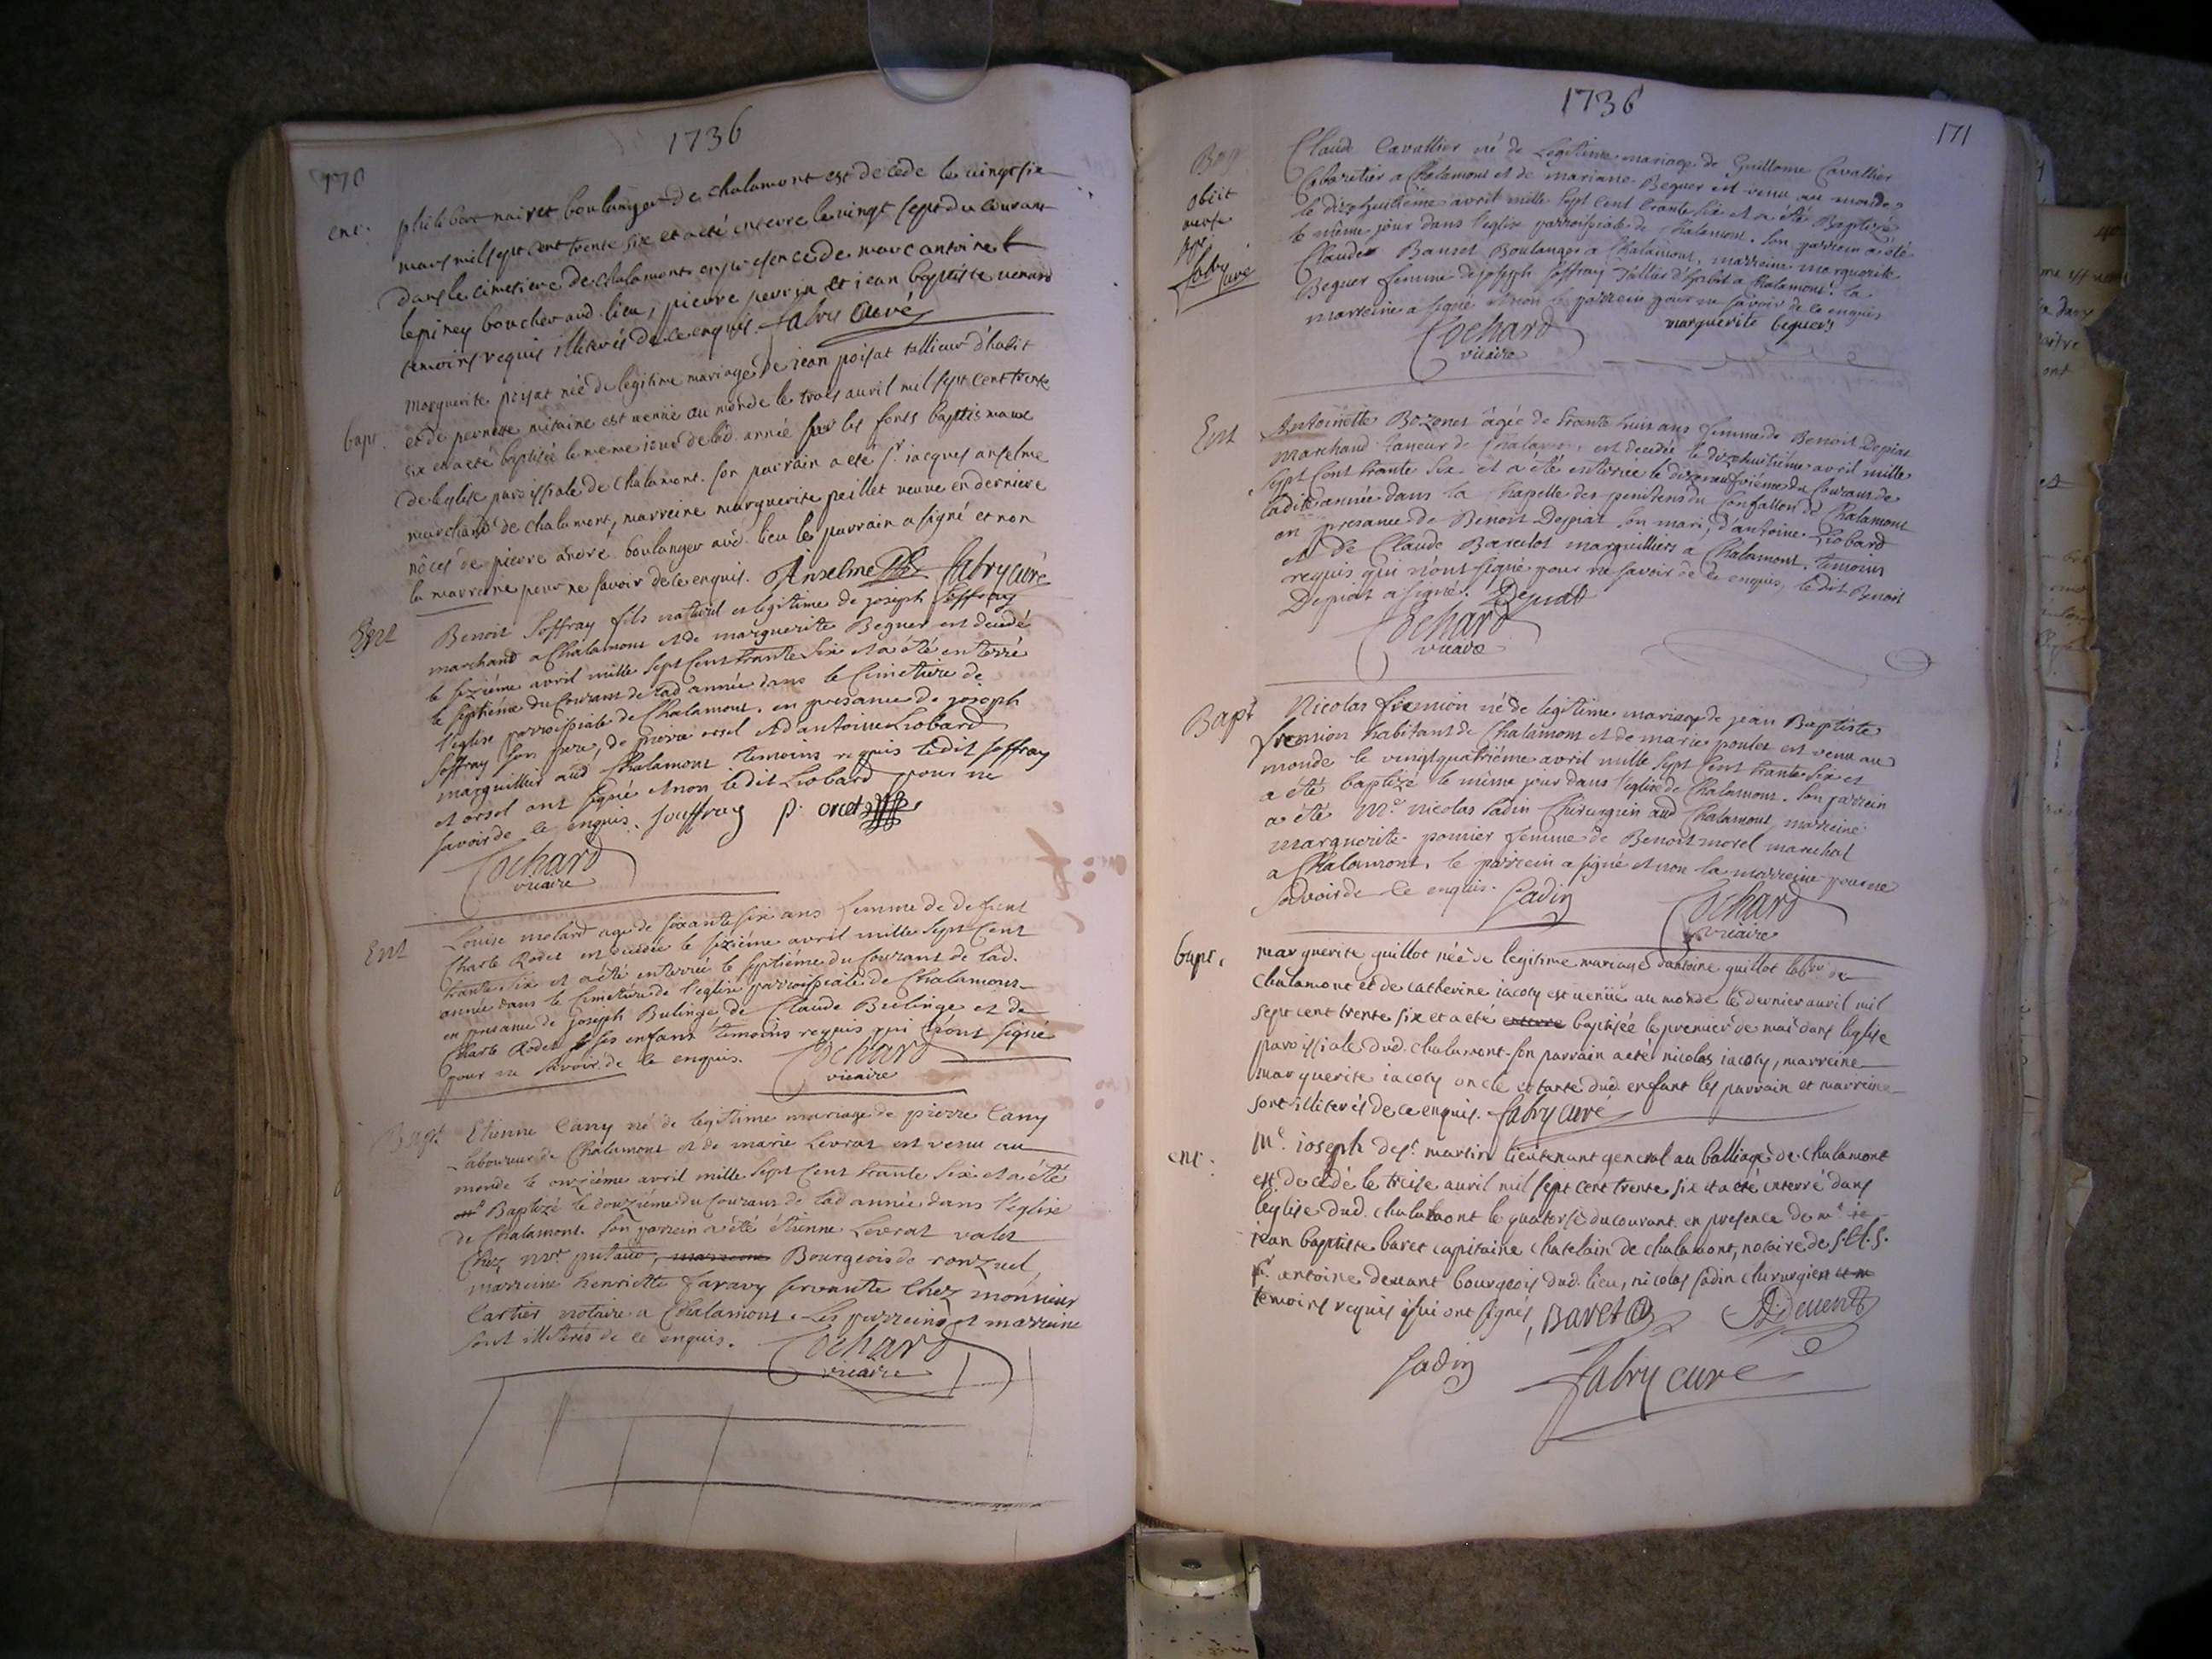 1736
170
ent. philibert nairet boulanger de chalamont est decede le vingt six
mars mil sept cent trente six et a eté enterre le vingt sept du courant
dans le cimetiere de chalamont en presence de marc antoine
lepiney boucher aud. lieu, pierre perrin et jean baptiste
temoins requis illiterés de ce enquis. fabry curé
bapt. marguerite poisat née de legitime mariage de jean poisat tallieur d'habit
et de pernette mitaine est venüe au monde le trois avril mil sept cent trente
six et a eté baptisée le meme jour de lad. année sur les fonts baptismaux
de leglise paroissiale de chalamont. son parrain a eté sr. jacques anselme
marchand de chalamont, marreine marguerite peillet veuve en derniere
nôces de pierre andré boulanger aud. lieu le parrain a signé et non
la marreine pour ne savoir de ce enquis. Anselme fabry curé
Ent Benoit Soffray fils naturel et legitime de joseph Soffray
marchand a Chalamont et de marguerite Beguer est decedé
le sixiéme avril mille sept Cent trante six et a été enterré
le septiéme du Courant de lad année dans le Cimetiere de
l'eglise parroissiale de Chalamont. en presance de joseph
Soffray son pere, de pierre orsel et d'antoine Liobard
marguillier aud Chalamont temoins requis ledit soffray
et orsel ont signé et non ledit Liobard pour ne
savoir de ce enquis. Souffray p. orcel
Cochard
vicaire
Ent Louise molard agée de soixante six ans femme de defunt
Charle Rodet est decedée le sixiéme avril mille sept Cent
trante six et a été enterrée le septiéme du Courant de lad.
année dans le Cimetiére de l'eglise parroissiale de Chalamont
en presance de joseph Bulinge de Claude Bulinge et de
Charle Rodet ses enfans temoins requis qui n'ont signé
pour ne savoir de ce enquis. Cochard
vicaire
Bapt Etienne Cany né de legitime mariage de pierre Cany
Laboureur de Chalamont et de marie Levrat est venu au
monde le onziéme avril mille sept Cent trante six et a été
Baptizé le douziéme du Courant de lad année dans l'eglise
de Chalamont. son parrein a été étienne Levrat valet
Chez mr. putaud, marreine Bourgeois de ronzuel,
marreine henriette faravy servante Chez monsieur
Cartier notaire a Chalamont. Les parreins et marreine
sont illiterés de ce enquis. Cochard
vicaire
1736
171
Bapt Claude Cavallier né de Legitime mariage de Guillome Cavallier
Cabaretier a Chalamont et de mariane Beguer est venu au monde
le dixhuitiéme avril mille sept Cent trante six et a été Baptizé
le même jour dans l'eglise parroissiale de Chalamont. son parrein a été
Claude Banset Boulanger a Chalamont, marreine marguerite
Beguer femme de joseph Soffray Tallieur d'habit a Chalamont. la
marreine a signé et non le parrein pour ne savoir de ce enquis
obiit
fabry
curé
marguerite beguer
Cochard
vicaire
Ent Antoinette Bozonet âgée de trante huit ans femme de Benoit Depiat
marchand Taneur de Chalamont, est decedée le dixhuitiéme avril mille
sept Cent trante six et a été enterrée le dixneufviéme du Courant de
ladite année dans la Chapelle des penitens du Confallon de Chalamont
en presance de Benoit Depiat son mari, d'antoine Liobard
et de Claude Barcelot marguilliers a Chalamont. temoins
requis qui n'ont signé pour ne savoir de ce enquis, ledit Benoit
Depiat a signé. Depiat
Cochard
vicaire
Bapt Nicolas fremion né de legitime mariage de jean Baptiste
fremion habitant de Chalamont et de marie poulet est venu au
monde le vingtquatriéme avril mille sept Cent trante six et
a été baptizé le même jour dans l'eglise de Chalamont. son parrein
a été Me. nicolas Sadin Chirurgien aud Chalamont, marreine
marguerite pomier femme de Benoit morel marechal
a Chalamont. le parrein a signé et non la marreine pour ne
savoir de ce enquis. Sadin Cochard
vicaire
bapt. marguerite guillot née de legitime mariage dantoine guillot labr. de
chalamont et de catherine jacoty est venüe au monde le dernier avril mil
sept cent trente six et a eté enterre baptisée le premier de mai dans leglise
paroissiale dud. chalamont. son parrain a eté nicolas jacoty, marreine
marguerite jacoty oncle et tante dud. enfant les parrain et marreine
sont illiterés de ce enquis. fabry curé
ent. me. joseph des st. martin lieutenant general au balliage de chalamont
est decedé le treise avril mil sept cent trente six et a eté enterré dans
léglise dud. chalamont le quatorse du courant. en presence de me.
jean baptiste baret capitaine chatelain de chalamont, notaire de S.A.S.
sr. antoine devant bourgeois dud. lieu, nicolas sadin chirurgien
temoins requis qui ont signés, Baret A. Devent
Sadin fabry curé